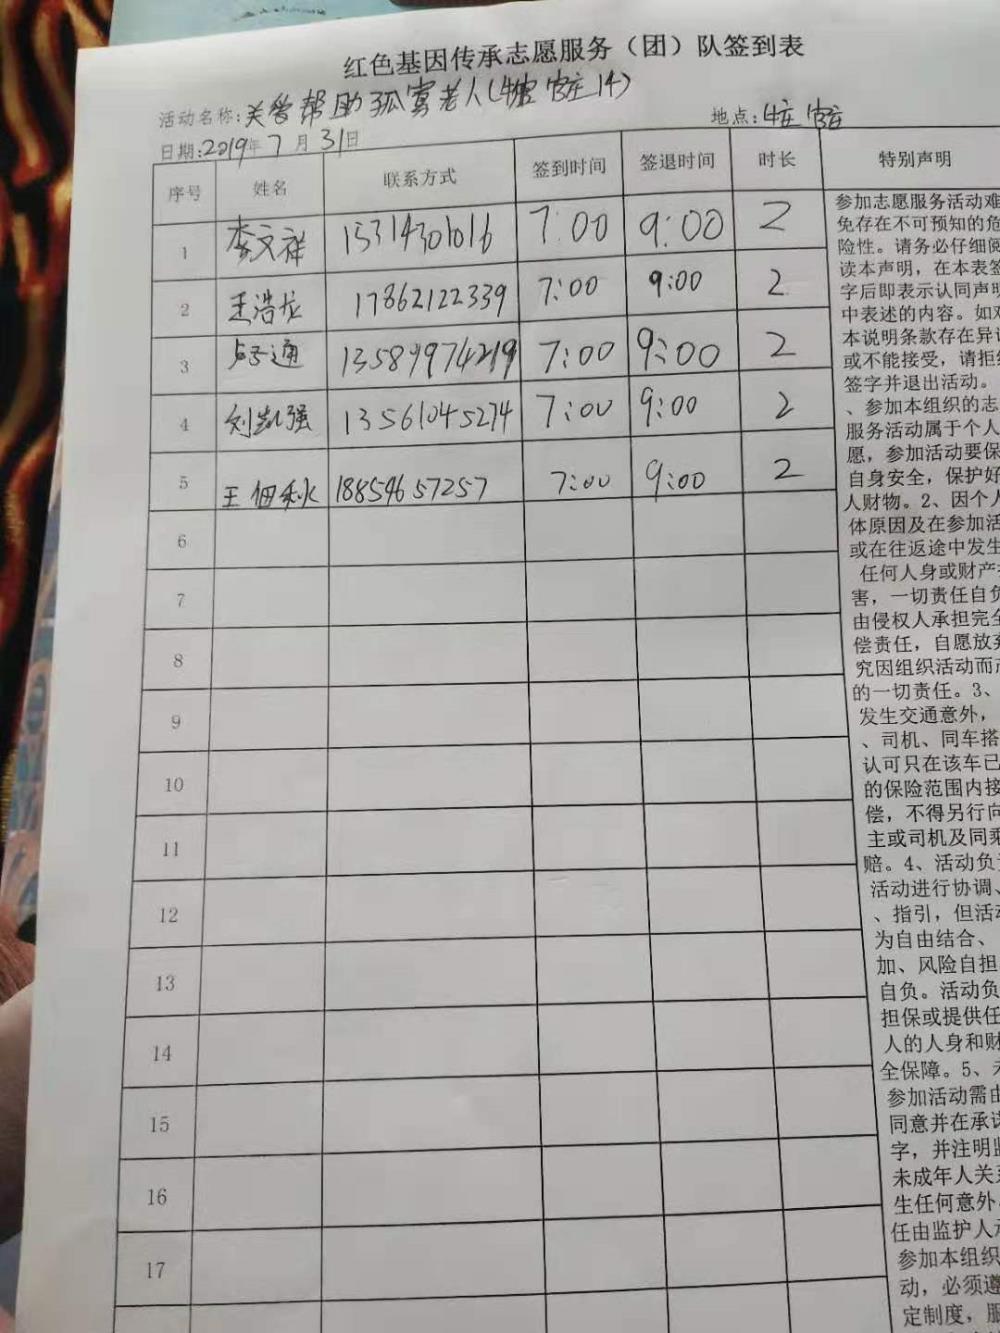 红色基因传承志愿服务（团）队签到表
活动名称:关爱帮助孤寡老人(官庄14)
地点:官庄
日期:2019年7月31日
序号 姓名 联系方式 签到时间 签退时间 时长 特别声明
1 李文祥 15314301016 7:00 9:00 2
2 王浩龙 17862122339 7:00 9:00 2
3 通 13589974219 7:00 9:00 2
4 刘凯强 13561045274 7:00 9:00 2
5 王佃秋 18854657257 7:00 9:00 2
6
7
8
9
10
11
12
13
14
15
16
17
参加志愿服务活动难
免存在不可预知的危
险性。请务必仔细阅
读本声明，在本表签
字后即表示认同声明
中表述的内容。如对
本说明条款存在异议
或不能接受，请拒绝
签字并退出活动。
、参加本组织的志
服务活动属于个人
愿，参加活动要保
自身安全，保护好
人财物。2、因个人
体原因及在参加活
或在往返途中发生
任何人身或财产
害，一切责任自负
由侵权人承担完全
偿责任，自愿放弃
究因组织活动而产
的一切责任。3、
发生交通意外，
、司机、同车搭
认可只在该车已
的保险范围内接
偿，不得另行向
主或司机及同乘
赔。4、活动负责
活动进行协调、
、指引，但活动
为自由结合、
加、风险自担
自负。活动负
担保或提供任
人的人身和财
全保障。5、未
参加活动需由
同意并在承诺
字，并注明监
未成年人关系
生任何意外
任由监护人承
参加本组织
动，必须遵
定制度，服